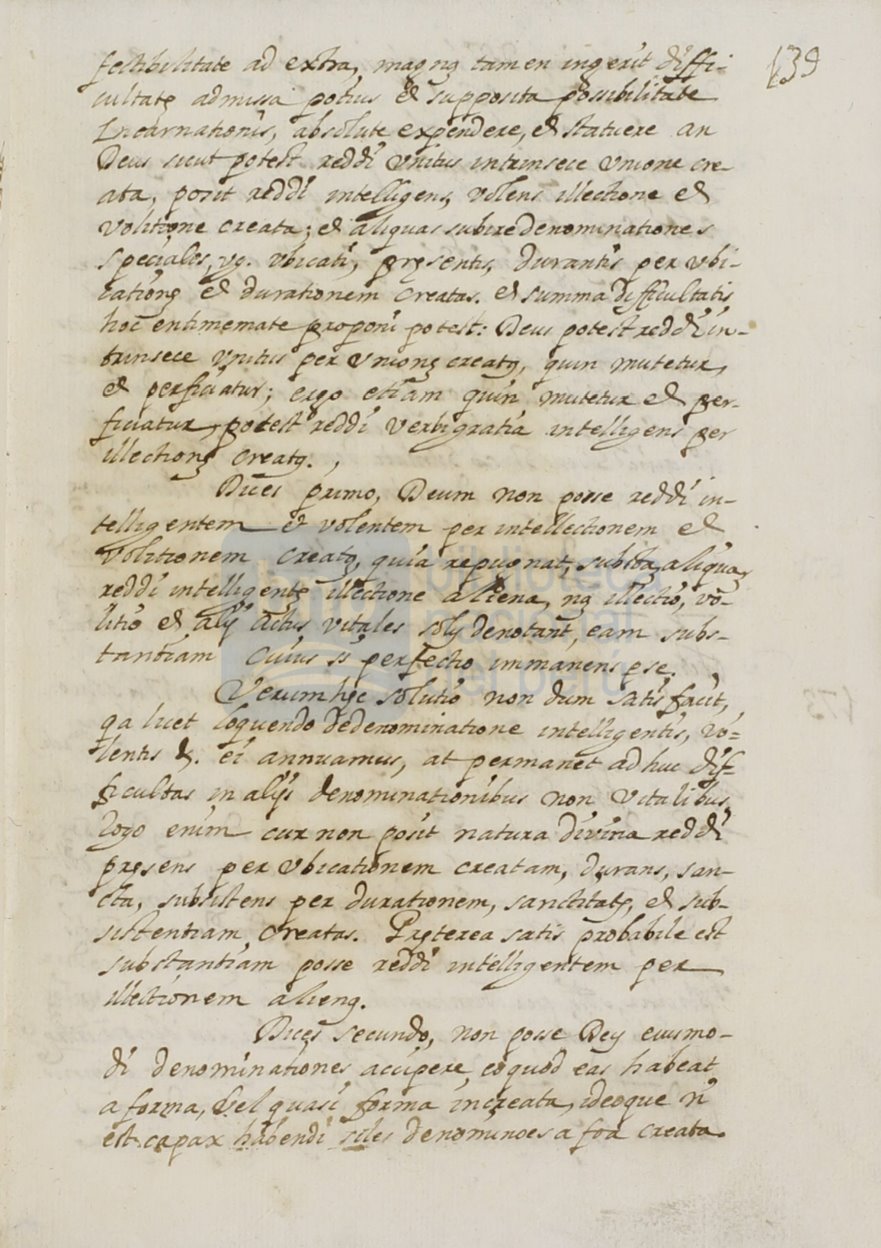 139
fectibilitate ad extra, magnę tamen ingerit diffi-
cultatę admissa potius et supposita possibilitate
Incarnationis, absolute expendere, et statuere an
Deus sicut potest reddi Vnitus intrinsece Vnione cre-
ata, posit reddi intelligens, volens illectione et
Volitione creata; et aliquas subire denominationes
speciales, vg. vbicati, pręsentis, durantis per vbi-
cationę et durationem creatas. et summa difficultatis
hoc entimemate proponi potest: Deus potest reddi in-
trinsece Vnitus per Vnionę creatą, quin mutetur,
et perficiatur; ergo etiam quin mutetur et per-
ficiatur, potest reddi Verbigratia intelligens per
illectionę creatą.
Dices primo, Deum non posse reddi in-
telligentem et volentem per intellectionem et
Volitionem creatą, quia repugnat, aliquą
reddi intelligentę illectione aliena, ną illectio, vo-
litio et alij actus vitales solų denotant, eam subs-
tantiam cuius st perfectio immanens p se.
Verum hęc solutio non dum satis facit,
qa licet loquendo de denominatione intelligentis, vo-
lentis &. ei annuamus, at permanet ad huc dif-
ficultas in alijs denominationibus non Vitalibus,
Rogo enim cur non posit natura divina reddi
pręsens per Vbicationem creatam, durans, san-
cta, subsistens per durationem, sanctitatę, et sub-
sistentiam creatas. Pręterea satis probabile est
substantiam posse reddi intelligentem per
illectionem alieną.
Dices secundo, non posse Deų euusmo-
di denominationes accipere, eo quod eas habeat
a forma, Vel quasi forma increata, ideoque n
est capax habendi siles denominoes a foa creata.